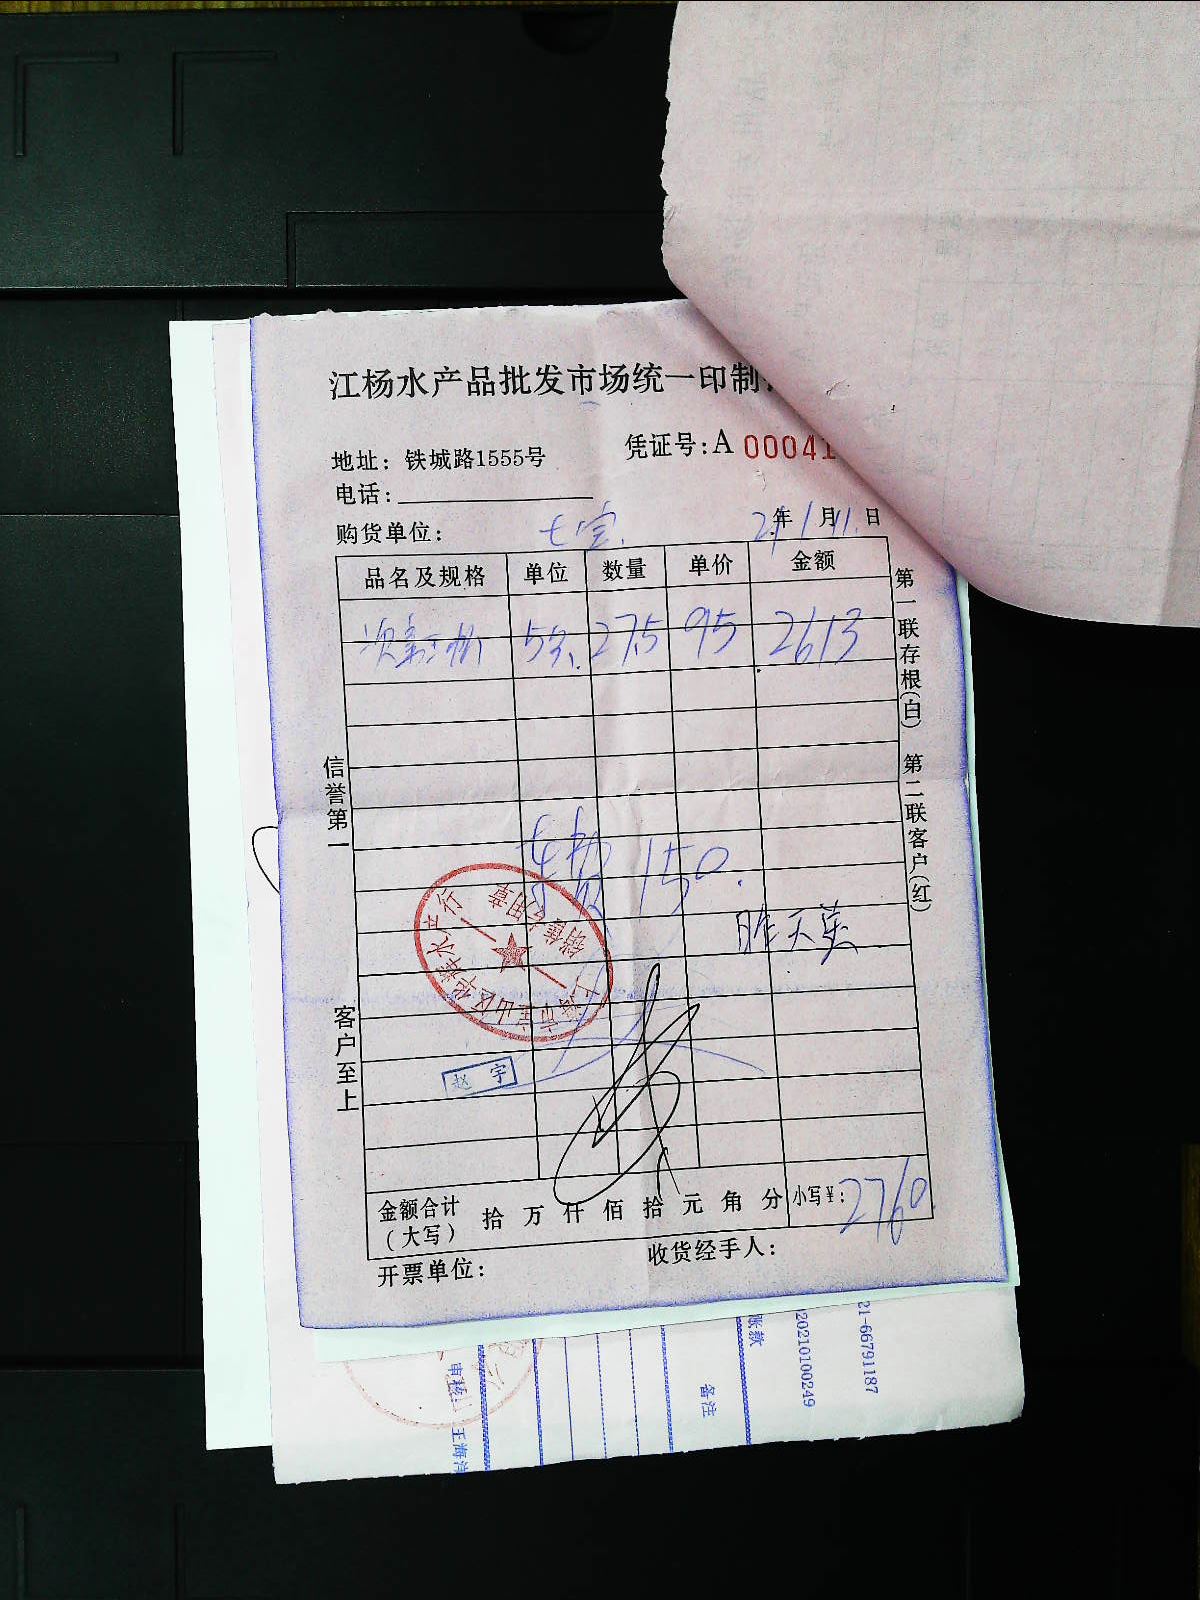 江杨水产品批发市场统一印制
地址: 铁城路1555号
凭证号:A 00041
电话:
购货单位: 七宝. 21年1月11.日
品名及规格 单位 数量 单价 金额
27.5 95 2613
车费 150.
昨天
信誉第一
客户至上
第一联存根(白) 第二联客户(红)
赵宇
金额合计(大写) 拾 万 仟 佰 拾 元 角 分 小写¥: 2760.
开票单位:
收货经手人:
账款
20210100249
21-66791187
备注
审核
王海